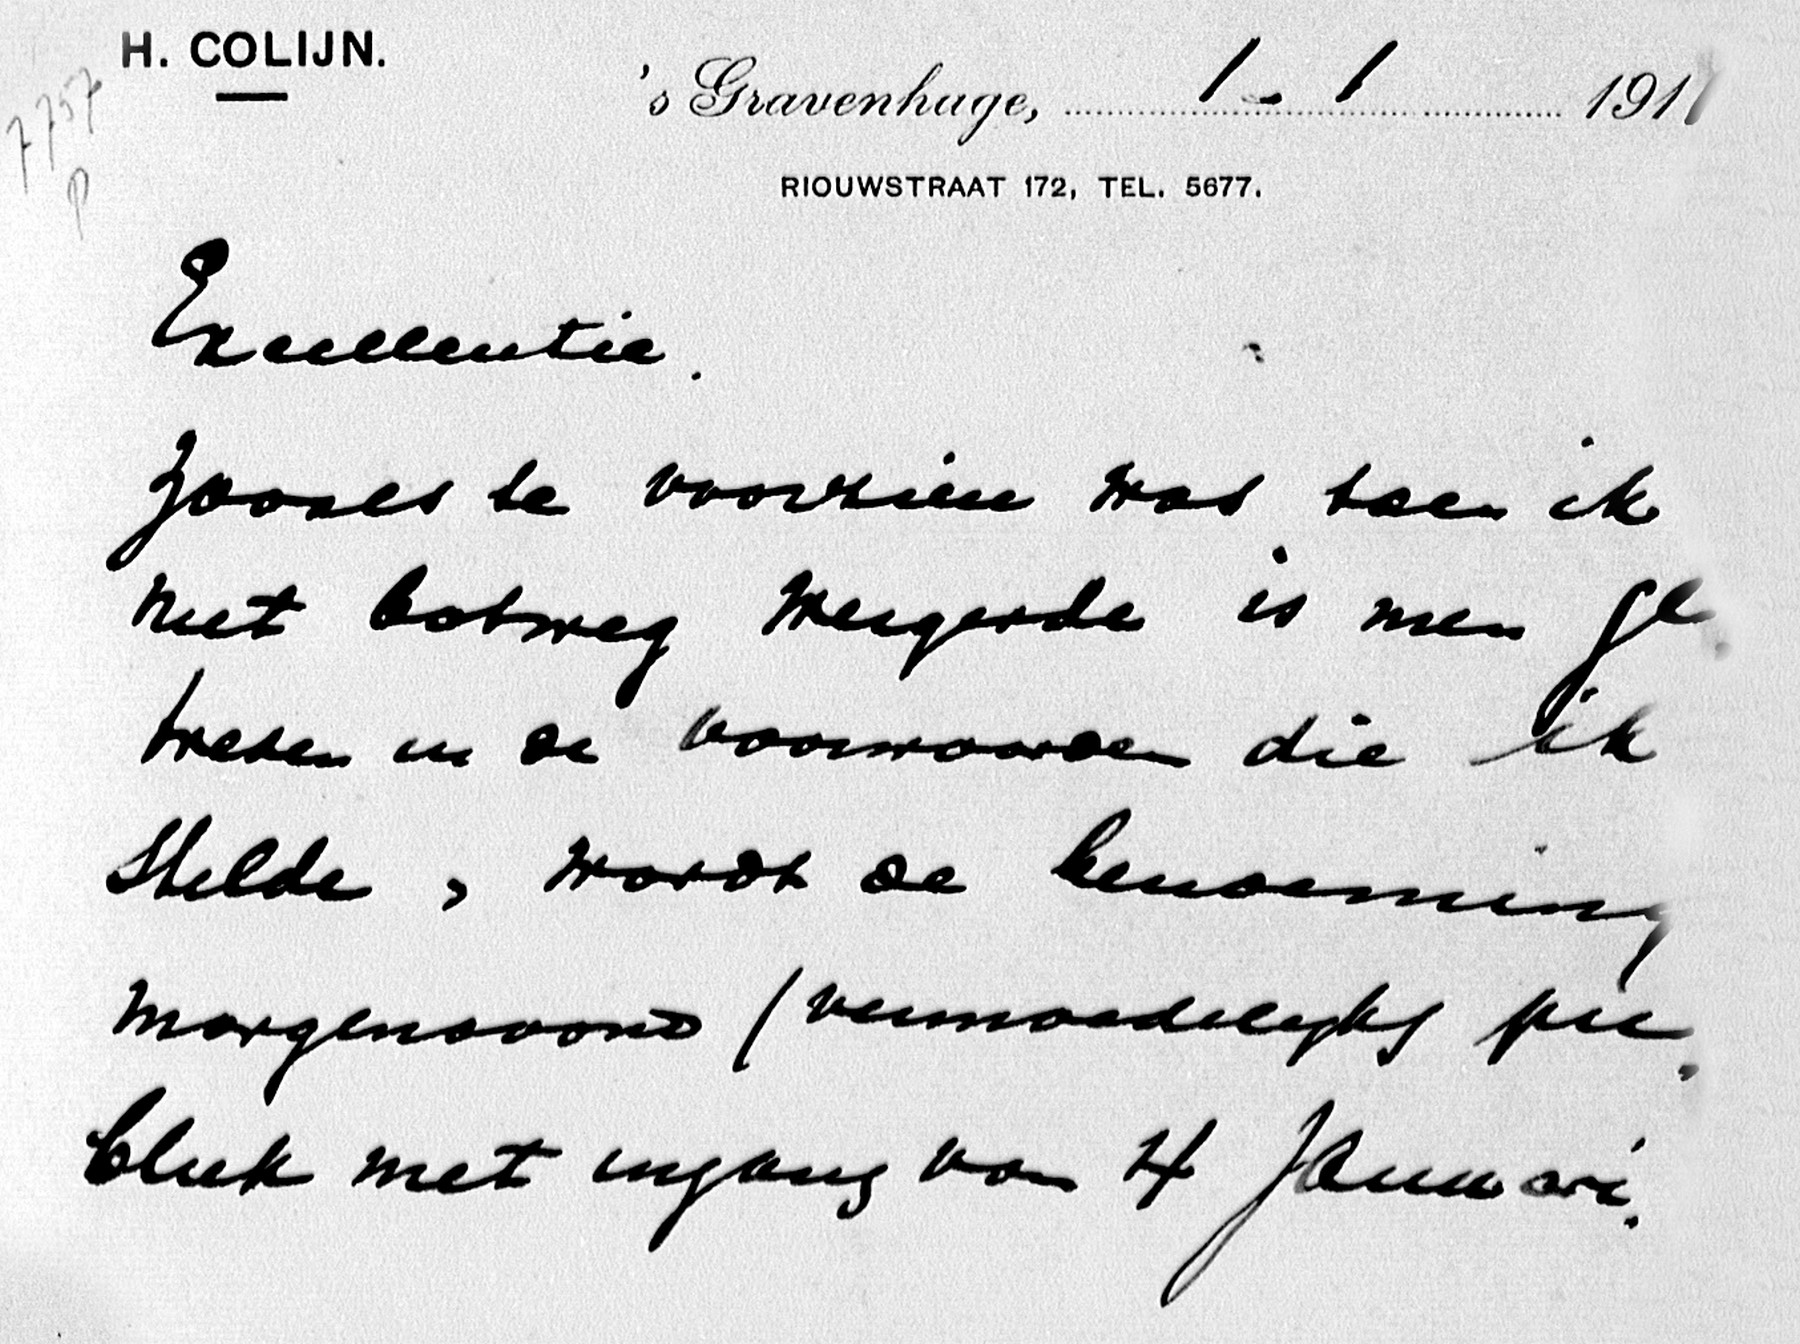 H. COLIJN.
's Gravenhage, 1-1 191
RIOUWSTRAAT 172, TEL. 5677.
7757
P
Excellentie.
Zooals te voorzien was toen ik
niet botweg weigerde is men ge
treden in de voorwaarden die ik
stelde, wordt de benoeming
morgenavond (vermoedelijk) pu
bliek met ingang van 4 Januari.